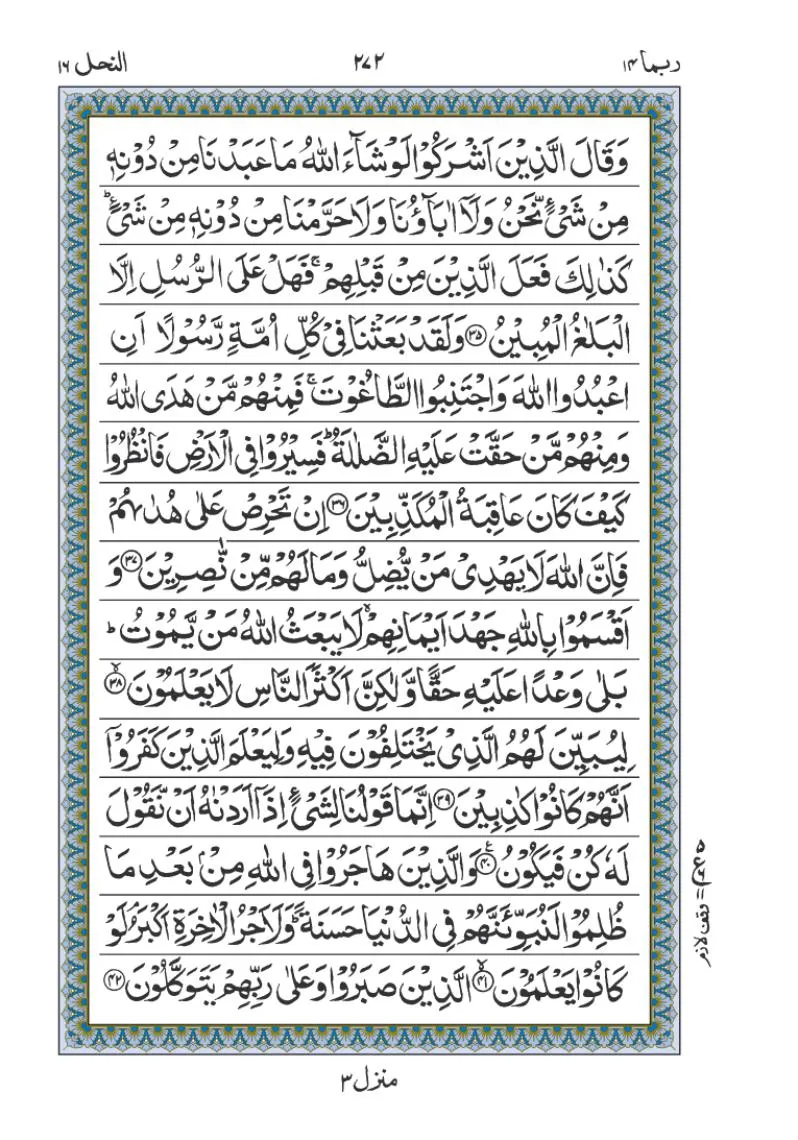 ربما ١٤ ٢٧٢ النحل ١٦
وَقَالَ الَّذِيْنَ اَشْرَكُوْا لَوْ شَآءَ اللّٰهُ مَا عَبَدْنَا مِنْ دُوْنِهٖ
مِنْ شَیْءٍ نَّحْنُ وَلَاۤ اٰبَآؤُنَا وَلَا حَرَّمْنَا مِنْ دُوْنِهٖ مِنْ شَیْءٍ ؕ
كَذٰلِكَ فَعَلَ الَّذِيْنَ مِنْ قَبْلِهِمْ ۚ فَهَلْ عَلَى الرُّسُلِ اِلَّا
الْبَلٰغُ الْمُبِيْنُ ﴿۳۵﴾ وَلَقَدْ بَعَثْنَا فِیْ كُلِّ اُمَّةٍ رَّسُوْلًا اَنِ
اعْبُدُوا اللّٰهَ وَاجْتَنِبُوا الطَّاغُوْتَ ۚ فَمِنْهُمْ مَّنْ هَدَى اللّٰهُ
وَمِنْهُمْ مَّنْ حَقَّتْ عَلَيْهِ الضَّلٰلَةُ ؕ فَسِيْرُوْا فِی الْاَرْضِ فَانْظُرُوْا
كَيْفَ كَانَ عَاقِبَةُ الْمُكَذِّبِيْنَ ﴿۳۶﴾ اِنْ تَحْرِصْ عَلٰى هُدٰىهُمْ
فَاِنَّ اللّٰهَ لَا يَهْدِیْ مَنْ يُّضِلُّ وَمَا لَهُمْ مِّنْ نّٰصِرِيْنَ ﴿۳۷﴾ وَ
اَقْسَمُوْا بِاللّٰهِ جَهْدَ اَيْمَانِهِمْ ۙ لَا يَبْعَثُ اللّٰهُ مَنْ يَّمُوْتُ ؕ
بَلٰى وَعْدًا عَلَيْهِ حَقًّا وَّلٰكِنَّ اَكْثَرَ النَّاسِ لَا يَعْلَمُوْنَ ۙ﴿۳۸﴾
لِيُبَيِّنَ لَهُمُ الَّذِیْ يَخْتَلِفُوْنَ فِيْهِ وَلِيَعْلَمَ الَّذِيْنَ كَفَرُوْۤا
اَنَّهُمْ كَانُوْا كٰذِبِيْنَ ﴿۳۹﴾ اِنَّمَا قَوْلُنَا لِشَیْءٍ اِذَاۤ اَرَدْنٰهُ اَنْ نَّقُوْلَ
لَهٗ كُنْ فَيَكُوْنُ ﴿۴۰﴾ۧ وَالَّذِيْنَ هَاجَرُوْا فِی اللّٰهِ مِنْۢ بَعْدِ مَا
ظُلِمُوْا لَنُبَوِّئَنَّهُمْ فِی الدُّنْيَا حَسَنَةً ؕ وَلَاَجْرُ الْاٰخِرَةِ اَكْبَرُ ۘ لَوْ
كَانُوْا يَعْلَمُوْنَ ۙ﴿۴۱﴾ الَّذِيْنَ صَبَرُوْا وَعَلٰى رَبِّهِمْ يَتَوَكَّلُوْنَ ﴿۴۲﴾
وقف لازم
منزل ٣